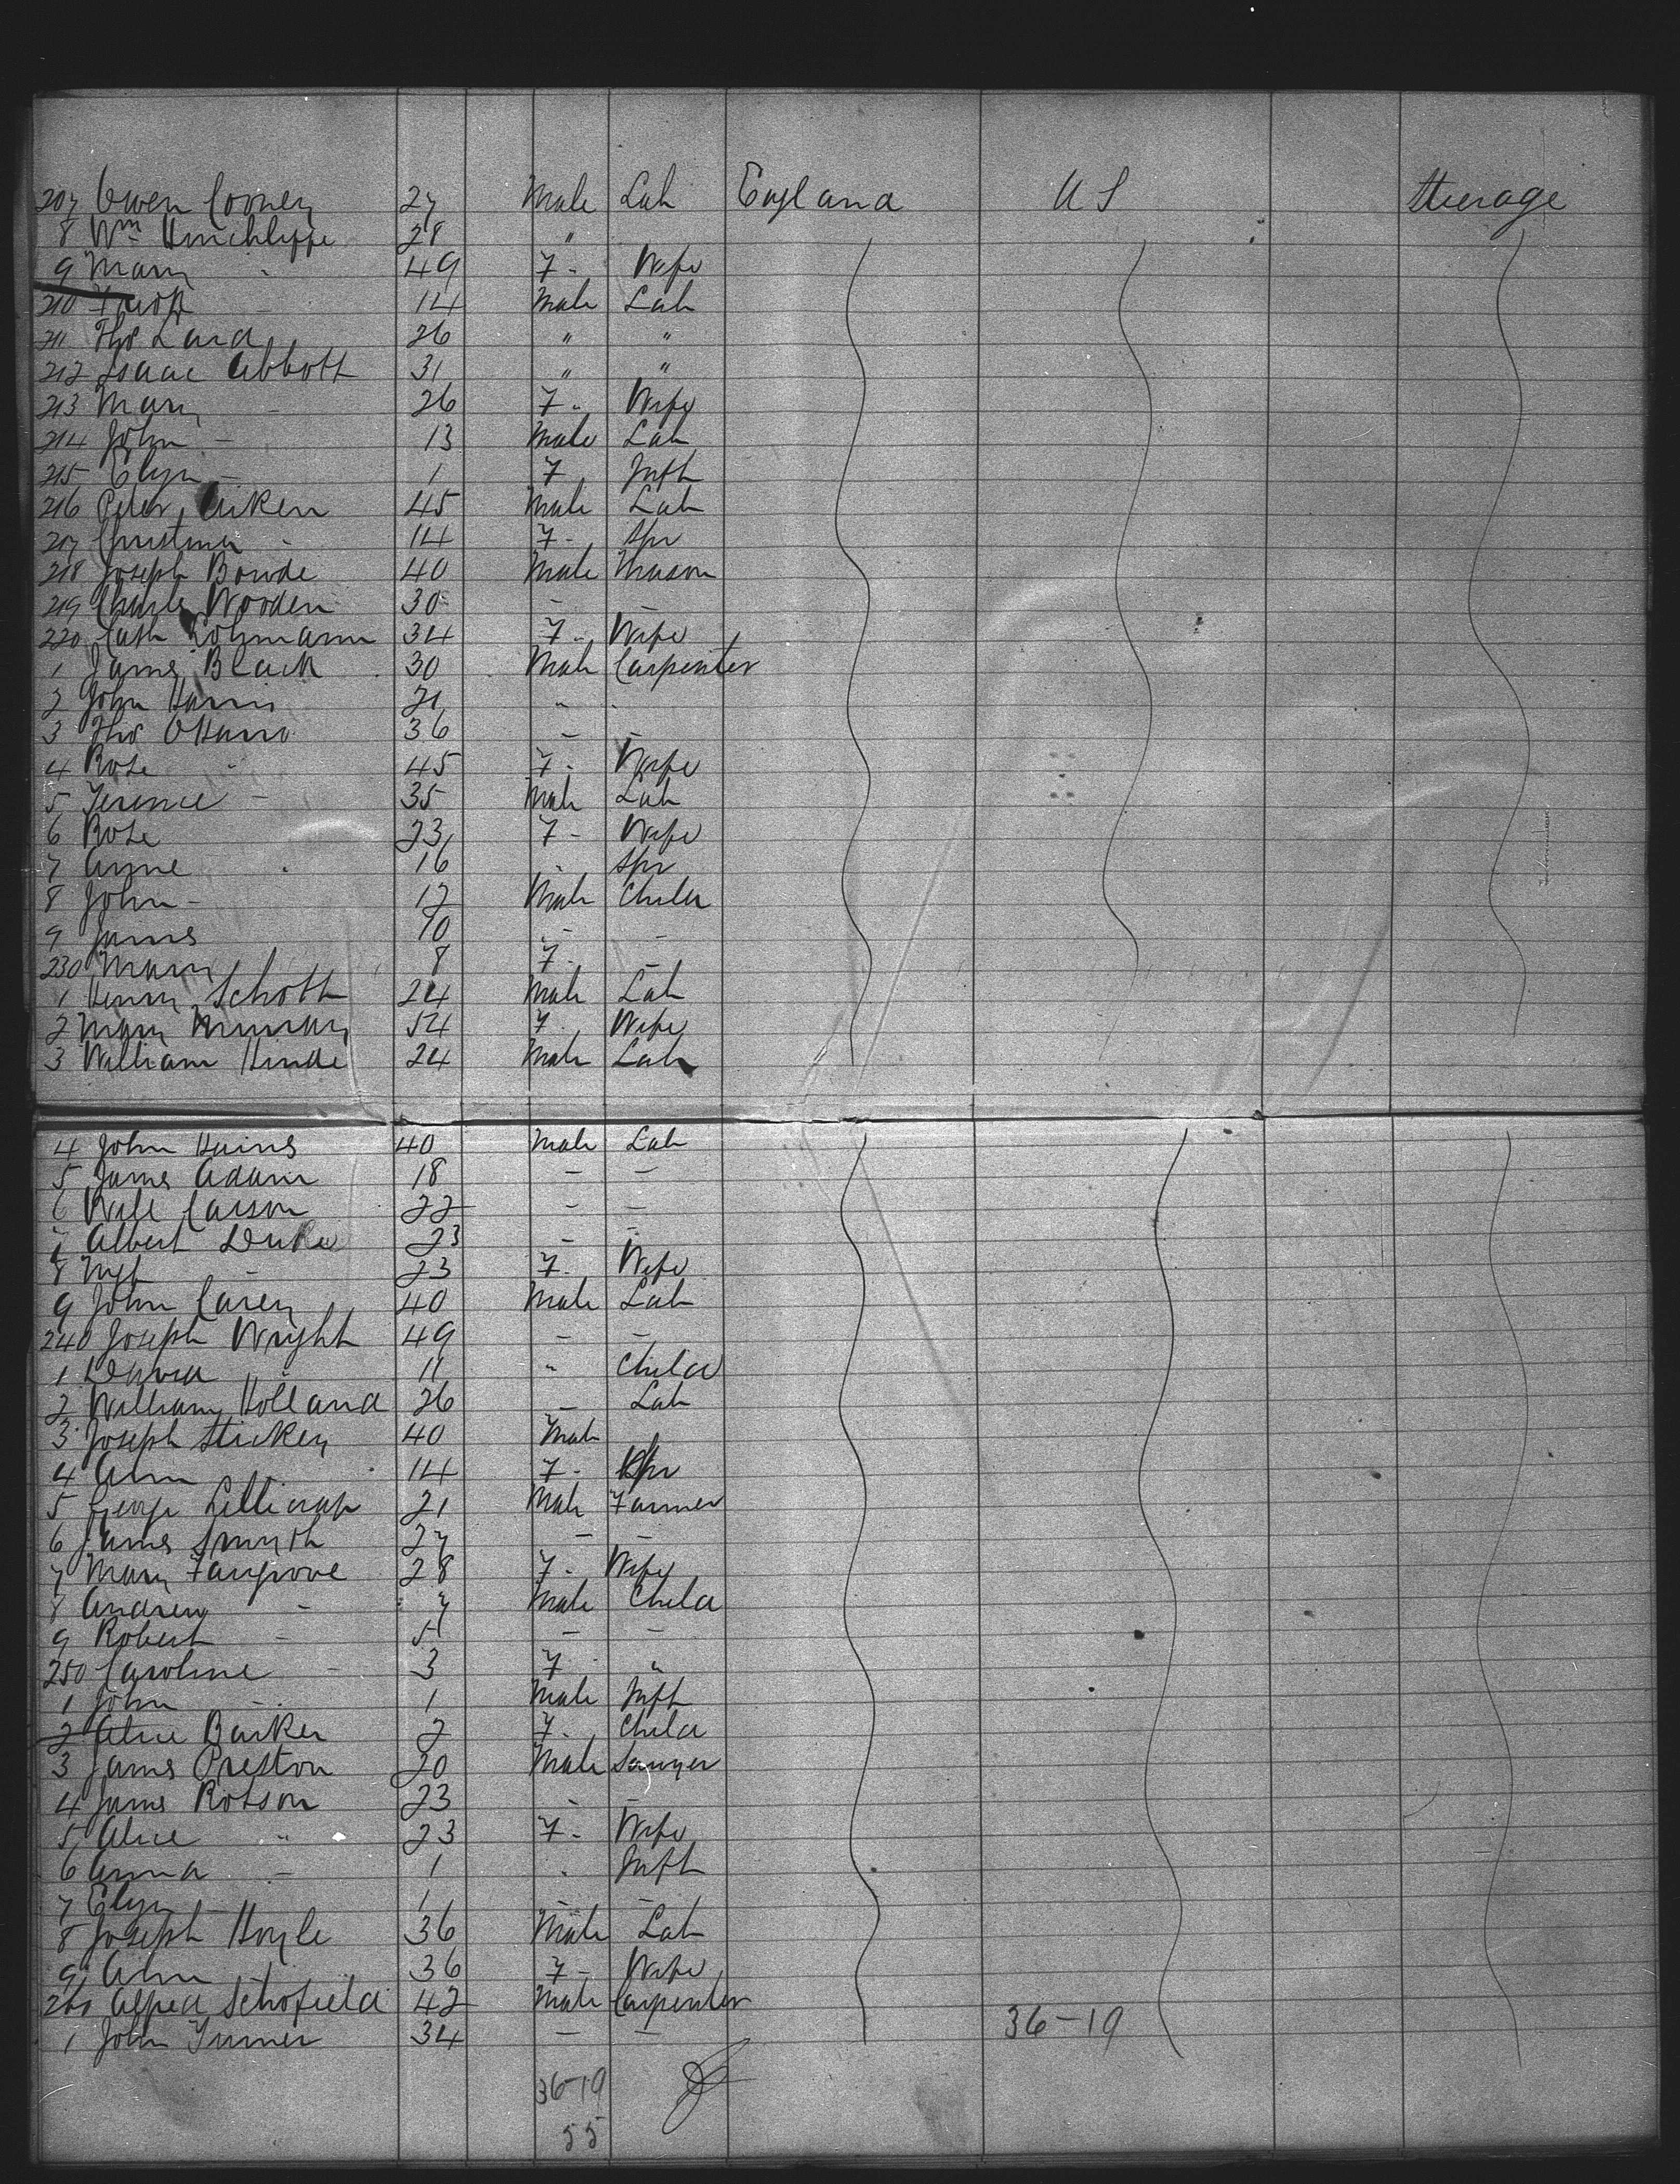 207 Owen Cooney 27 Male Lab England US Steerage
8 Wm Hinchliffe 28 "
9 Mary - 49 F- Wife
210 14 Male Lab
211 Thos Laird 26 " "
212 Isaac Abbott 31 " "
213 Mary - 26 F- Wife
214 John - 13 Male Lab
215 Eliza - 1 F Inft
216 Peter Aiken 45 Male Lab
217 Christina - 14 F- Spr
218 Joseph Bowde 40 Male Mason
219 Charles Wooden 30 - -
220 Cath Lohmann 34 F- Wife
1 James Black 30 Male Carpenter
2 John Harris 21 " "
3 Thos OHara 36 - -
4 Rose - 45 F- Wife
5 Terence - 35 Male Lab
6 Rose 23 F- Wife
7 Anne 16 - Spr
8 John - 12 Male Child
9 James 10 - -
230 Mary 8 F- -
1 Henry Schott 24 Male Lab
2 Mary Murray 54 F Wife
3 William Hinde 24 Male Lab
4 John Hains 40 Male Lab
5 James Adam 18 - -
6 Will Carson 22 - -
7 Albert Duke 23 - -
8 Mgt - 23 F- Wife
9 John Carey 40 Male Lab
240 Joseph Wright 49 - -
1 David " 11 " Child
2 William Holland 26 - Lab
3 Joseph Stickey 40 Male
4 Ann 14 F- Spr
5 George Lillicrap 21 Male Farmer
6 James Smyth 27 - -
7 Mary Fargrove 28 F- Wife
8 Andrew - 7 Male Child
9 Robert - 5 - -
250 Caroline - 3 F "
1 John - 1 Male Inft
2 Alice Barker 2 F- Child
3 James Preston 20 Male Sawyer
4 James Rotson 23 - -
5 Alice " 23 F- Wife
6 Anna - 1 - Inft
7 Eliza - 1 - -
8 Joseph Hoyle 36 Male Lab
9 Ann - 36 F- Wife
260 Alfred Schofield 42 Male Carpenter
1 John Turner 34 - - 36-19
36-19
55